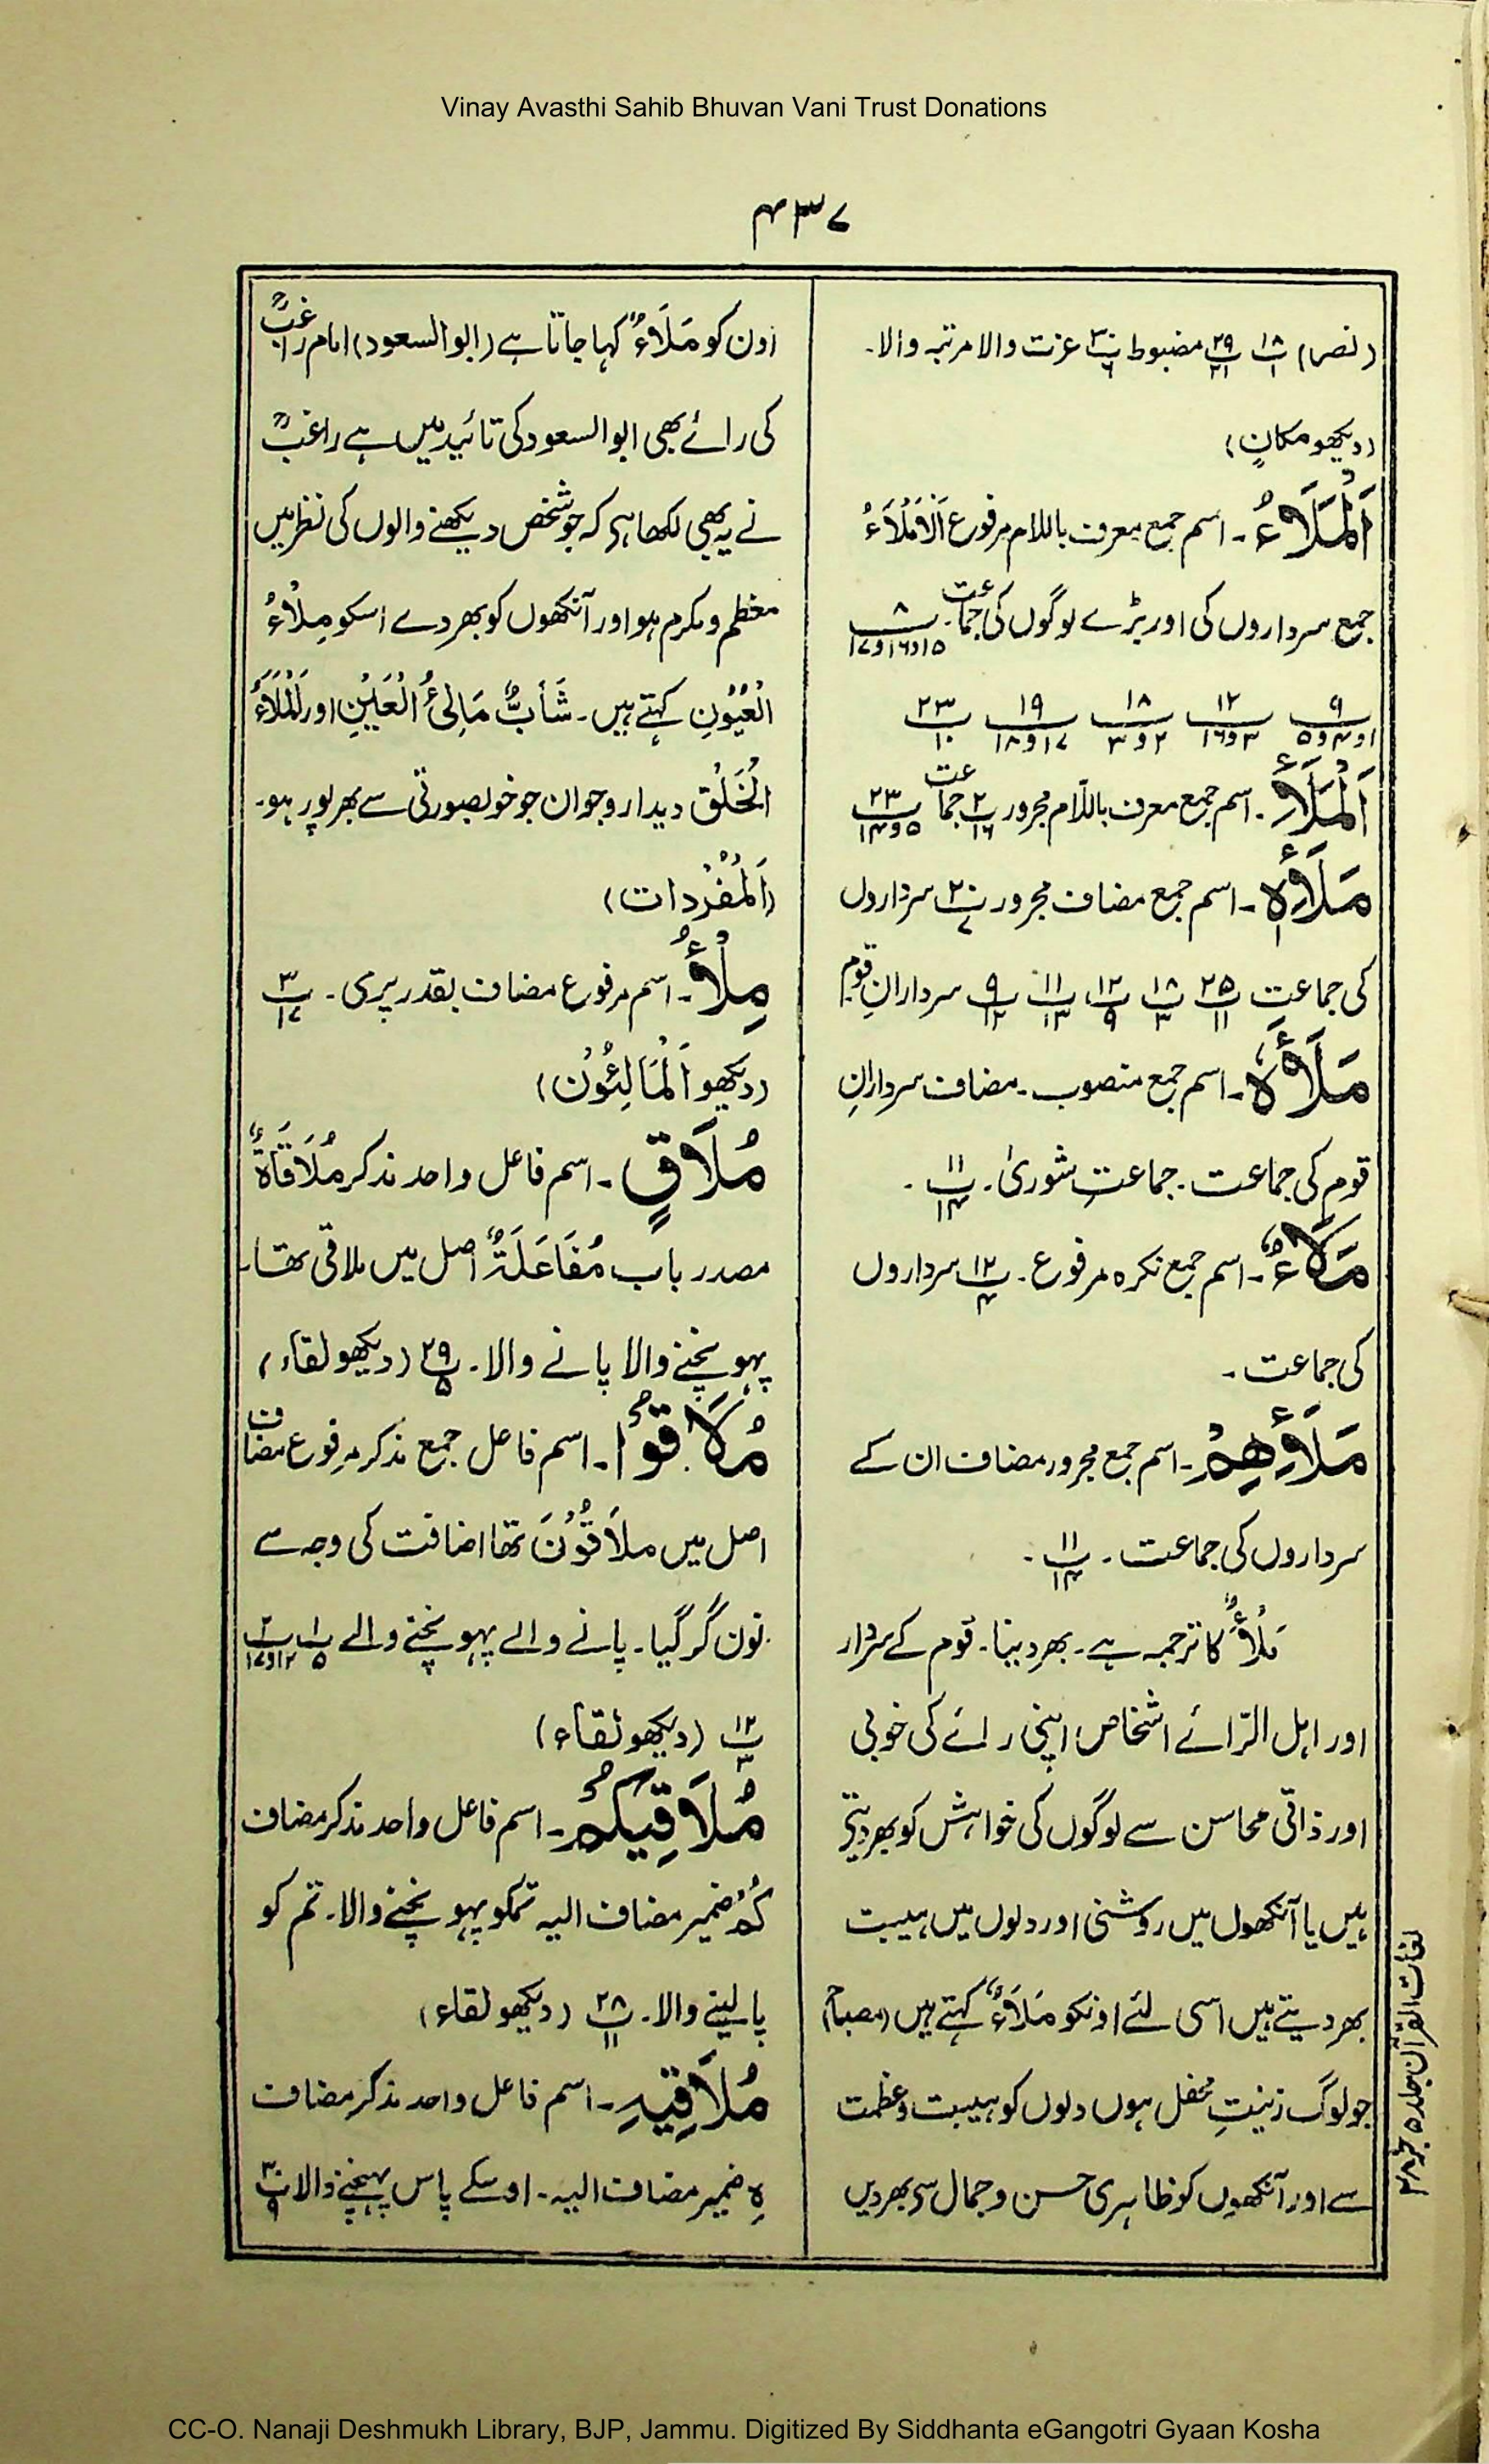 Vinay Avasthi Sahib Bhuvan Vani Trust Donations
۴۳۷
(نصر) پ۱۸/۱ پ۲۹/۲۱ مضبوط پ۳۰/۶ عزت والا مرتبہ والا۔
(دیکھو مکانٍ)
اَلْمَلَاءُ۔ اسم جمع معرف باللام مرفوع اَلْاَمْلَاءُ
جمع سرداروں کی اور بڑے لوگوں کی جماعت۔ پ۸/۱۵و۱۶و۱۷
۹/۱و۴و۵ ۱۲/۳و۱۶ ۱۸/۲و۳ ۱۹/۱۷و۱۸ ۲۳/۱۰
اَلْمَلَأِ۔ اسم جمع معرف باللّام مجرور پ۲/۱۶ جماعت پ۲۳/۵و۱۴
مَلَأِہٖ۔ اسم جمع مضاف مجرور پ۲۰/۷ سرداروں
کی جماعتِ پ۲۵/۱۱ پ۱۸/۳ پ۱۲/۹ پ۱۱/۱۳ پ۹/۱۲ سردارانِ قوم
مَلَأَہٗ۔ اسم جمع منصوب۔ مضاف سردارانِ
قوم کی جماعت۔ جماعتِ شوریٰ۔ پ۱۱/۱۴۔
مَلَاءٌ۔ اسم جمع نکرہ مرفوع۔ پ۱۲/۴ سرداروں
کی جماعت۔
مَلَأِهِمْ۔ اسم جمع مجرور مضاف ان کے
سرداروں کی جماعت۔ پ۱۱/۱۴۔
مَلْأٌ کا ترجمہ ہے۔ بھر دینا۔ قوم کے سردار
اور اہل الرّائے اشخاص اپنی رائے کی خوبی
اور ذاتی محاسن سے لوگوں کی خواہش کو بھر دیتی
ہیں یا آنکھوں میں روشنی اور دلوں میں ہیبت
بھر دیتے ہیں اسی لئے اونکو مَلَاءٌ کہتے ہیں (مصباح)
جو لوگ زینتِ محفل ہوں دلوں کو ہیبت و عظمت
سے اور آنکھوں کو ظاہری حسن و جمال سی بھر دیں
اون کو مَلَاءٌ کہا جاتا ہے (ابوالسعود) امام راغبؒ
کی رائے بھی ابوالسعود کی تائید میں ہے راغبؒ
نے یہ بھی لکھا ہی کہ جو شخص دیکھنے والوں کی نظر میں
معظم و مکرم ہو اور آنکھوں کو بھر دے اسکو مِلْاءُ
الْعُیُوْنِ کہتے ہیں۔ شَابٌّ مَالِئُ الْعَیْنِ اور الْمَلَاءُ
الْخَلْق دیدارو جوان جو خوبصورتی سے بھر پور ہو۔
(اَلْمُفْرَدات)
مِلْأُ۔ اسم مرفوع مضاف بقدر پری۔ پ۳/۱۷
(دیکھو اَلْمَالِئُوْنَ)
مُلَاقٍ۔ اسم فاعل واحد مذکر مُلَاقَاةٌ
مصدر باب مُفَاعَلَةٌ اصل میں ملاقی تھا۔
پہونچنے والا پانے والا۔ پ۲۹/۵ (دیکھو لقاء)
مُلَاقُوْا۔ اسم فاعل جمع مذکر مرفوع مضاف
اصل میں ملَاقُوْنَ تھا اضافت کی وجہ سے
نون گر گیا۔ پانے والے پہونچنے والے پ۱/۵ پ۲/۱۲و۱۷
پ۱۲/۳ (دیکھو لقاء)
مُلَاقِیْکُمْ۔ اسم فاعل واحد مذکر مضاف
کُمْ ضمیر مضاف الیہ تمکو پہونچنے والا۔ تم کو
پالینے والا۔ پ۲۸/۱۱ (دیکھو لقاء)
مُلَاقِیْہِ۔ اسم فاعل واحد مذکر مضاف
ہِ ضمیر مضاف الیہ۔ اوسکے پاس پہنچنے والا پ۳۰/۹
لغات القرآن جلد ۵
CC-O. Nanaji Deshmukh Library, BJP, Jammu. Digitized By Siddhanta eGangotri Gyaan Kosha